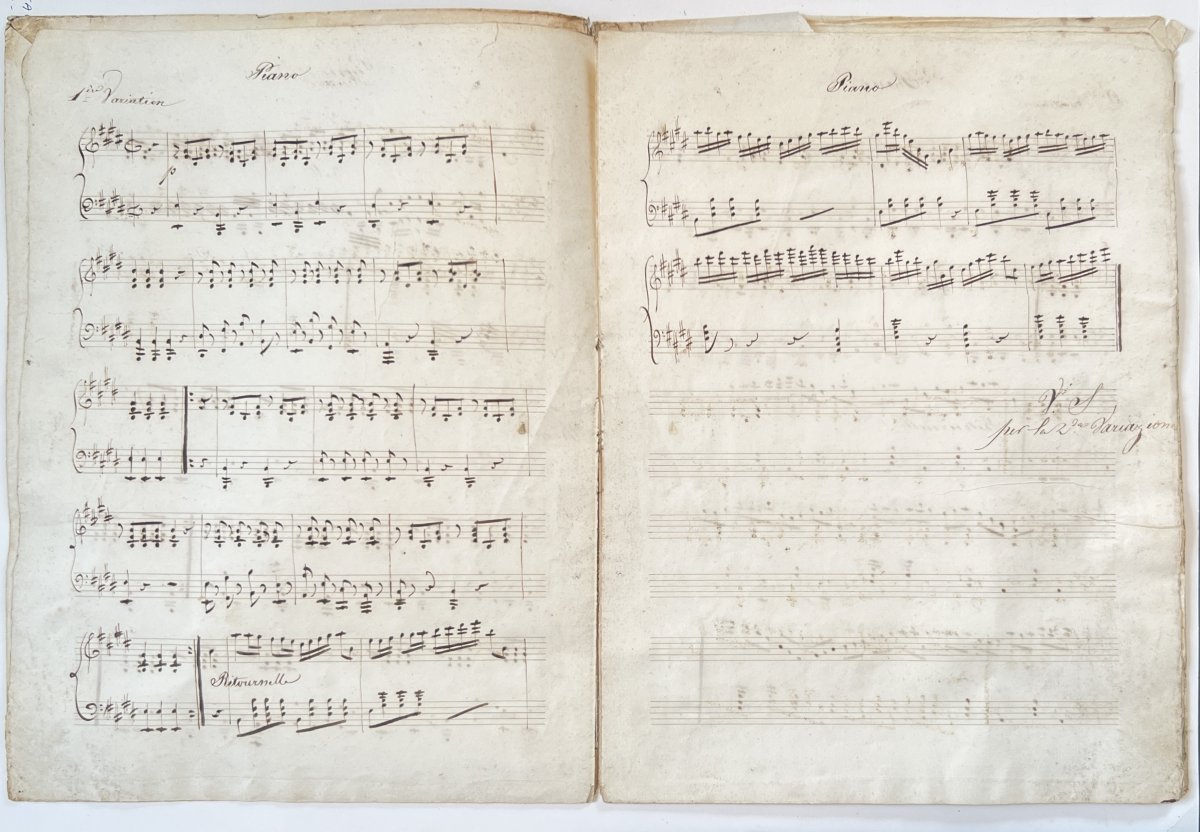 Piano
1ere Variation
p
Retournelle
Piano
V. S
per la 2da Variazione